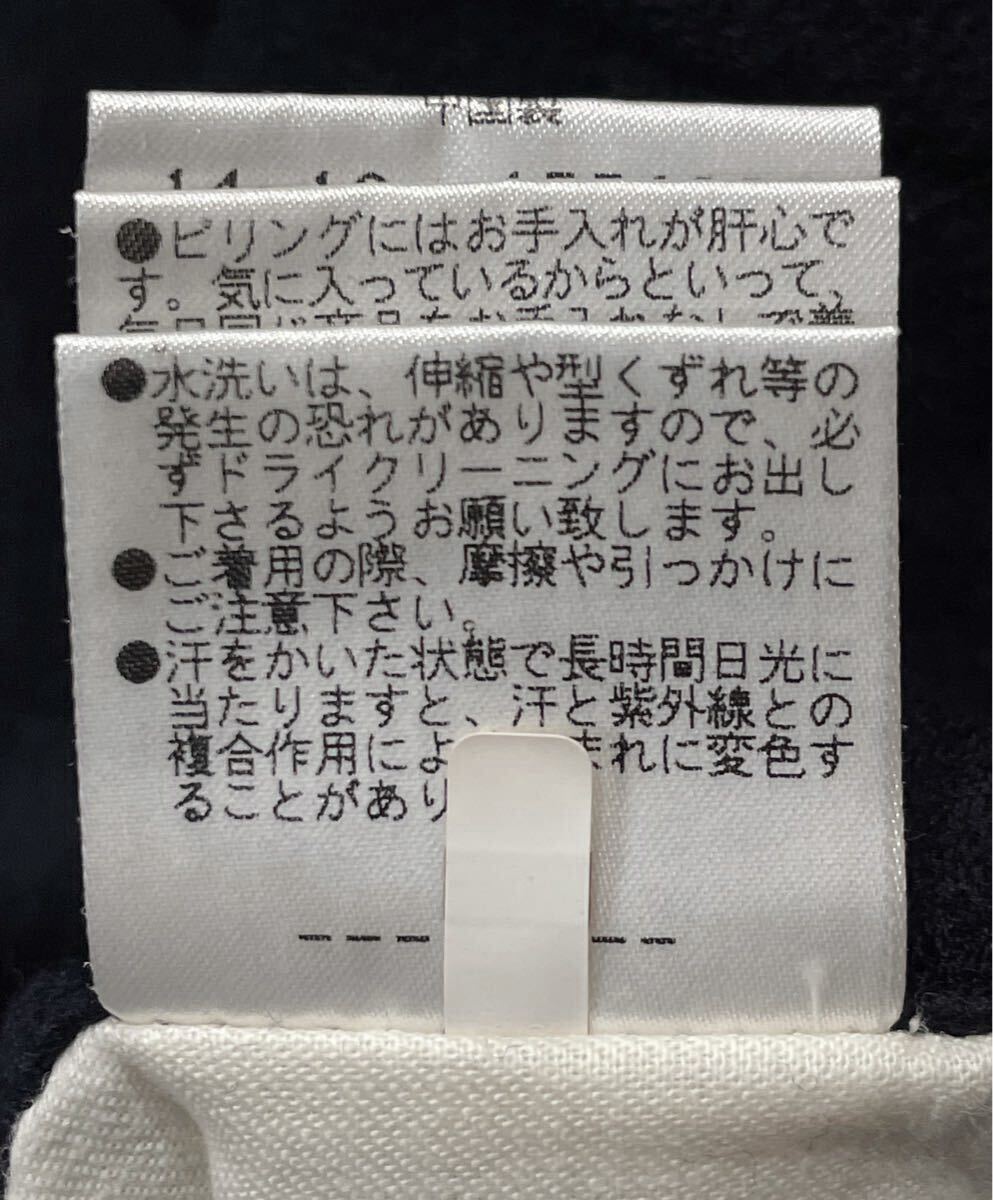 中国製
●ピリングにはお手入れが肝心で
す。気に入っているからといって、
●水洗いは、伸縮や型くずれ等の
発生の恐れがありますので、必
ずドライクリーニングにお出し
下さるようお願い致します。
●ご着用の際、摩擦や引っかけに
ご注意下さい。
●汗をかいた状態で長時間日光に
当たりますと、汗と紫外線との
複合作用によ まれに変色す
ることがあり